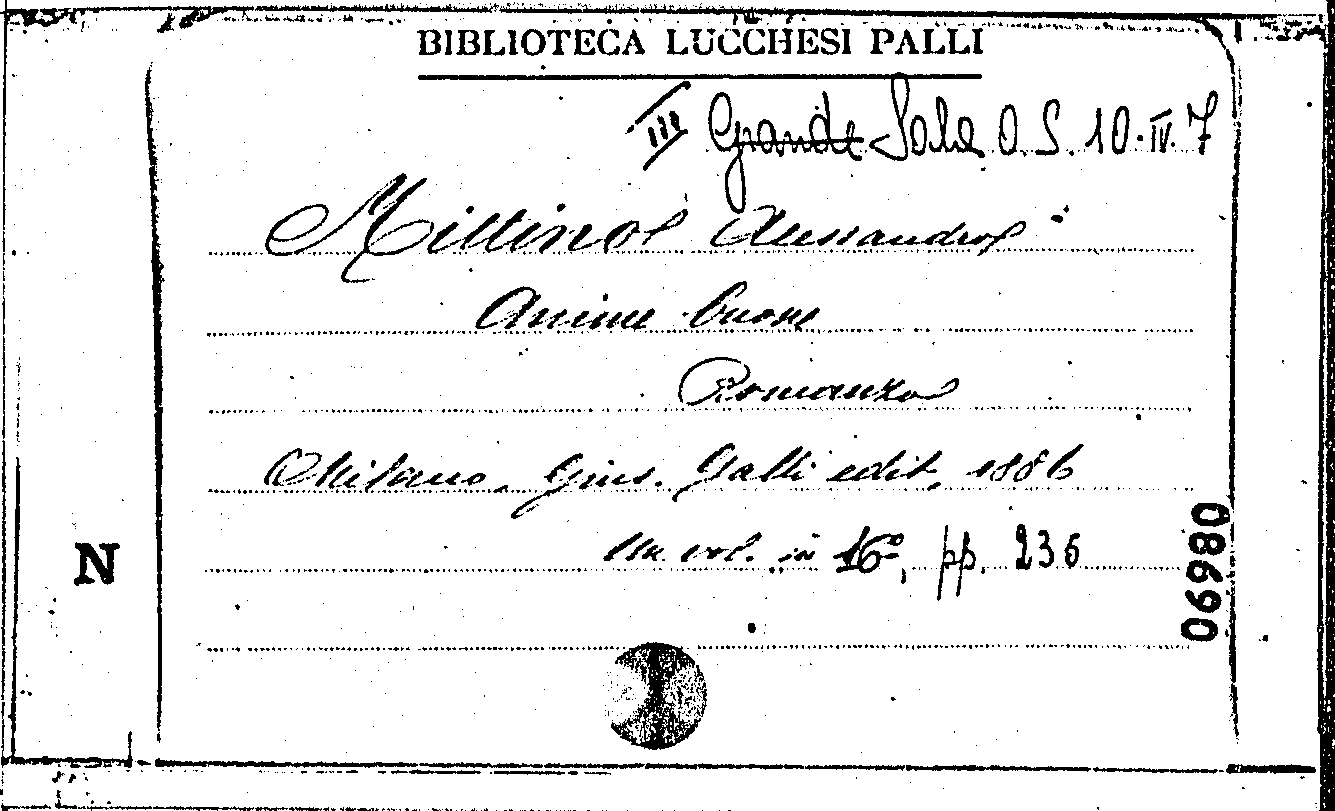 BIBLIOTECA LUCCHESI PALLI
III Grande Sala O. S. 10. IV. 7
Alessandro
Anime buone
Romanzo
Milano, Gius. Galli edit, 1886
Un vol. in 16º, pp. 236
N
06980